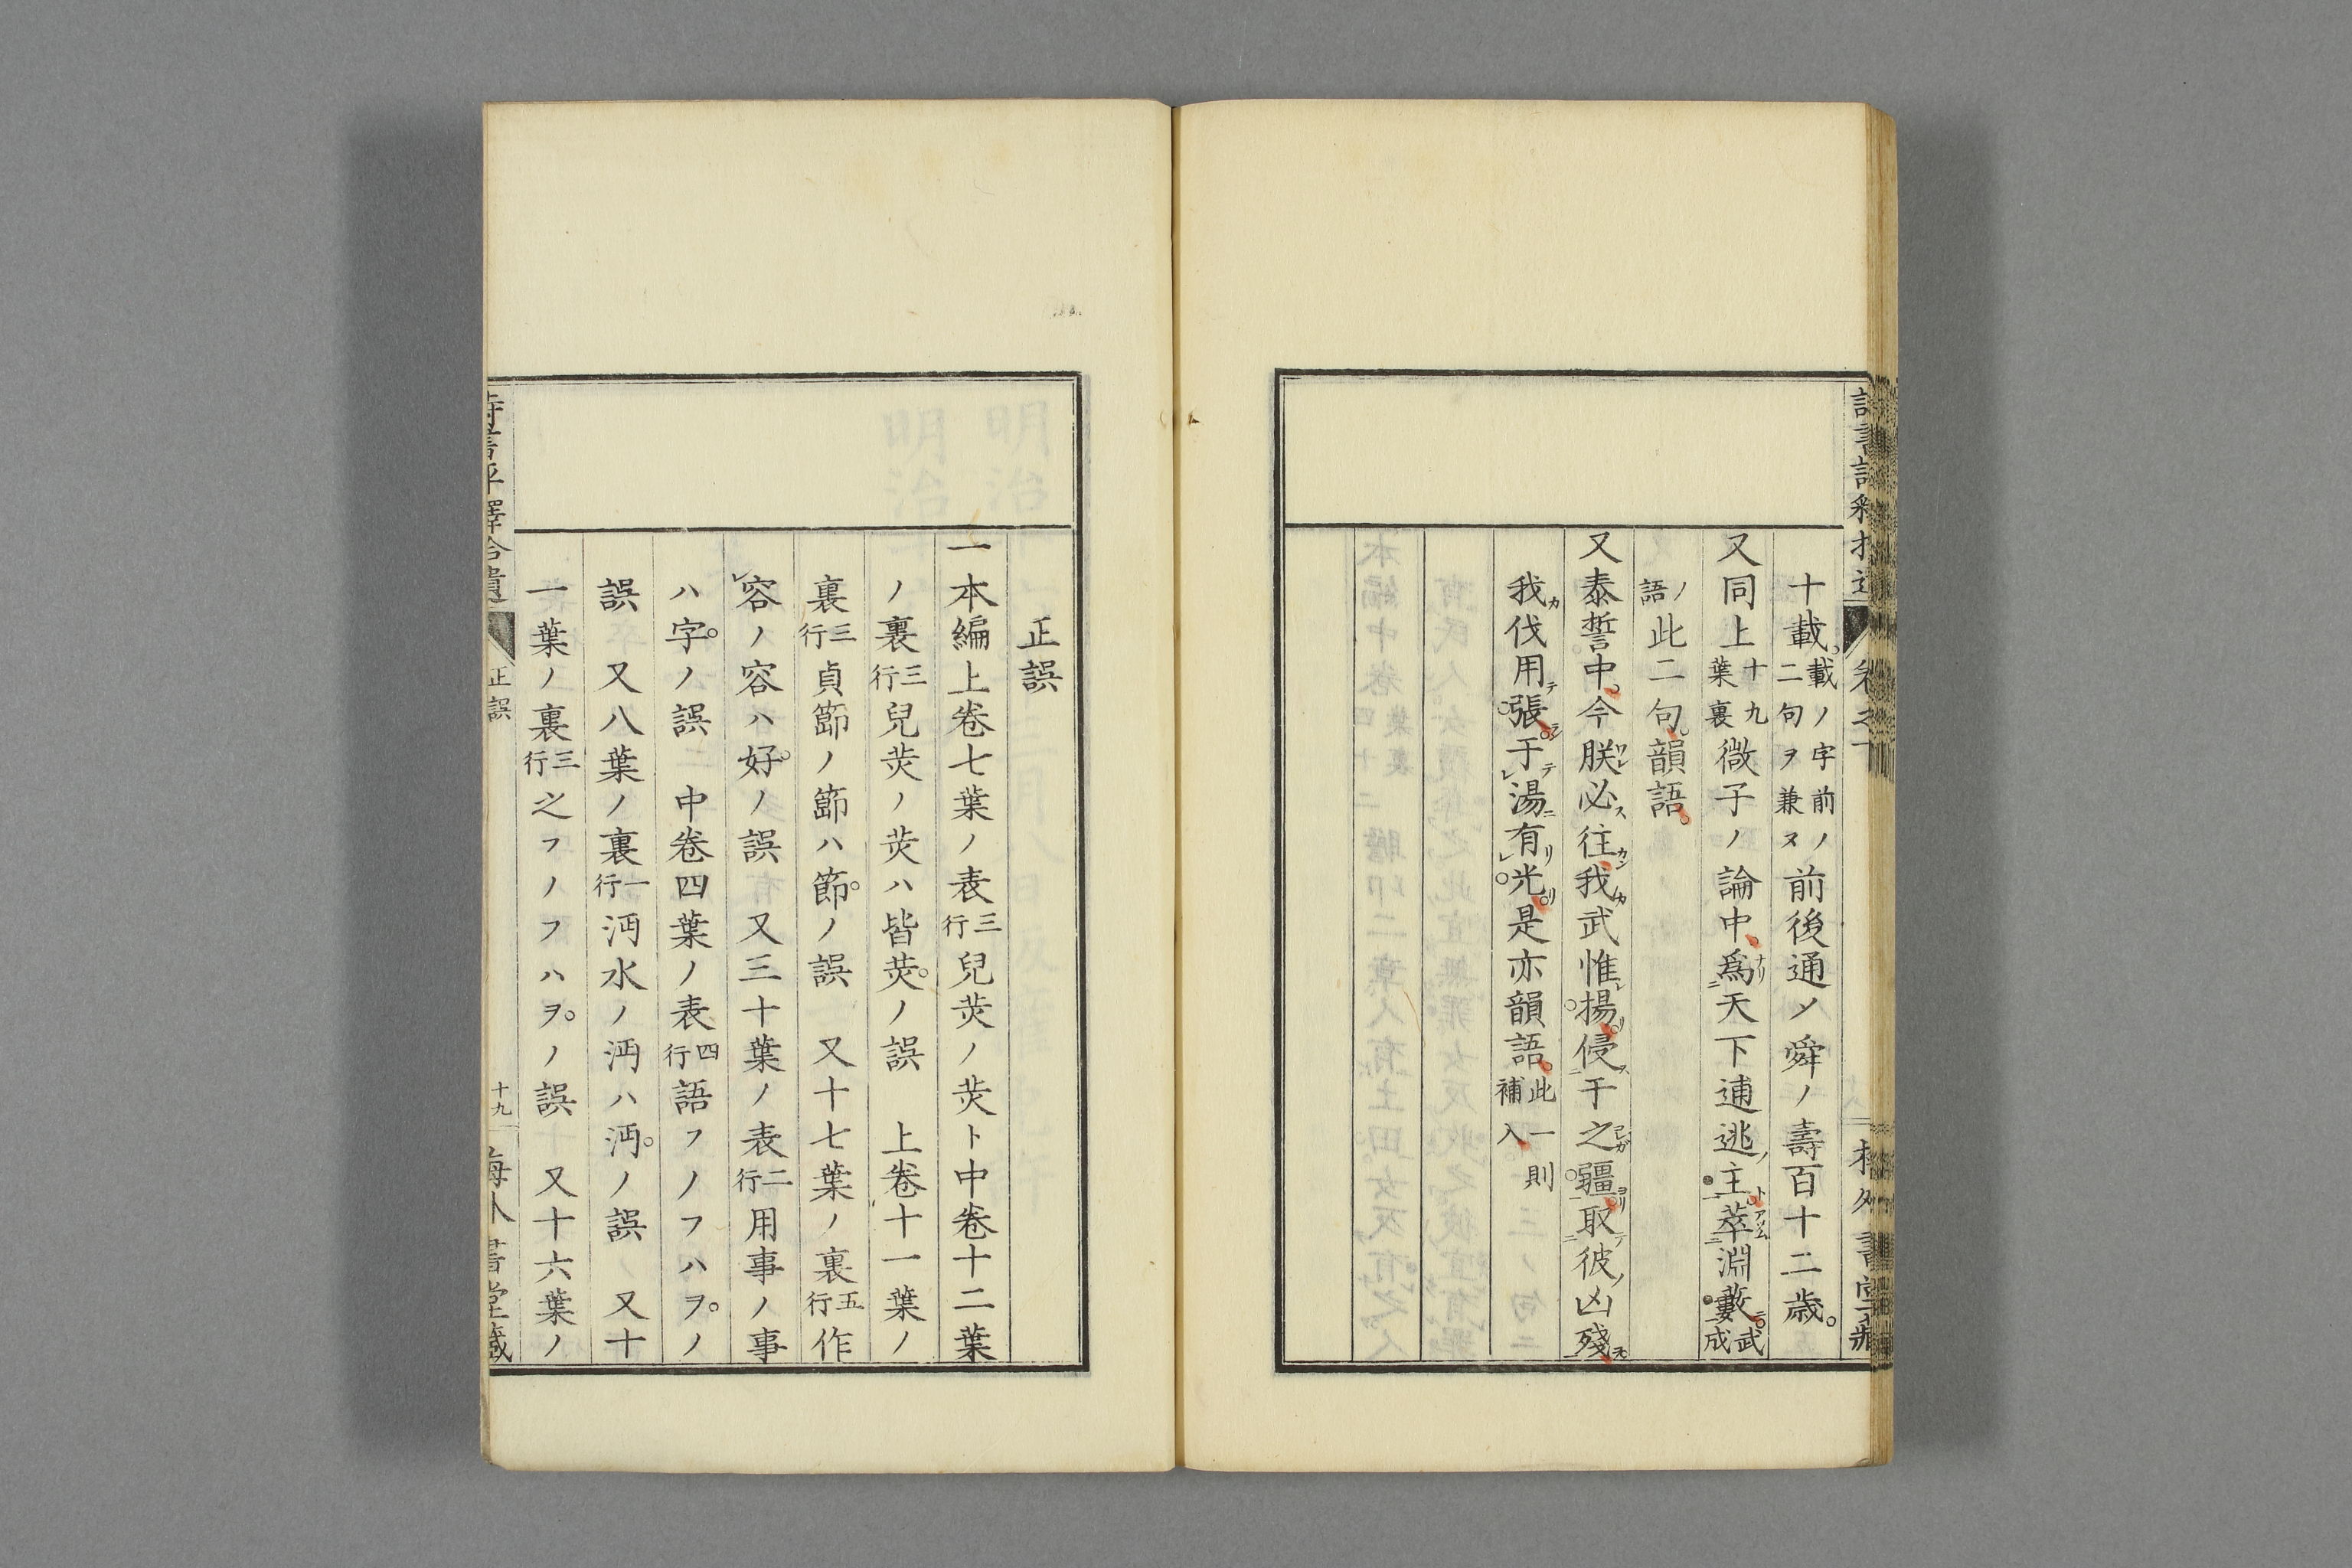 十載。載ノ字前ノ二句ヲ兼ヌ前後通ノ舜ノ壽百十二歳。
又同上十九葉裏微子ノ論中。爲天下逋逃主萃淵藪。武成
ノ語此二句。韻語。
又泰誓中。今朕必往我武惟揚侵于之疆取彼凶殘
我伐用張于湯有光是亦韻語。此一則補入
正誤
一本編上卷七葉ノ表三行兒茨ノ茨ト中卷十二葉
ノ裏三行兒茨ノ茨ハ皆茨。ノ誤 上卷十一葉ノ
裏三行貞節ノ節ハ節。ノ誤 又十七葉ノ裏五行作
容ノ容ハ好。ノ誤 又三十葉ノ表二行用事ノ事
ハ字。ノ誤 中卷四葉ノ表四行語フノフハヲ。ノ
誤 又八葉ノ裏一行沔水ノ沔ハ沔。ノ誤 又十
一葉ノ裏三行之フノフハヲ。ノ誤 又十六葉ノ
正誤
十九